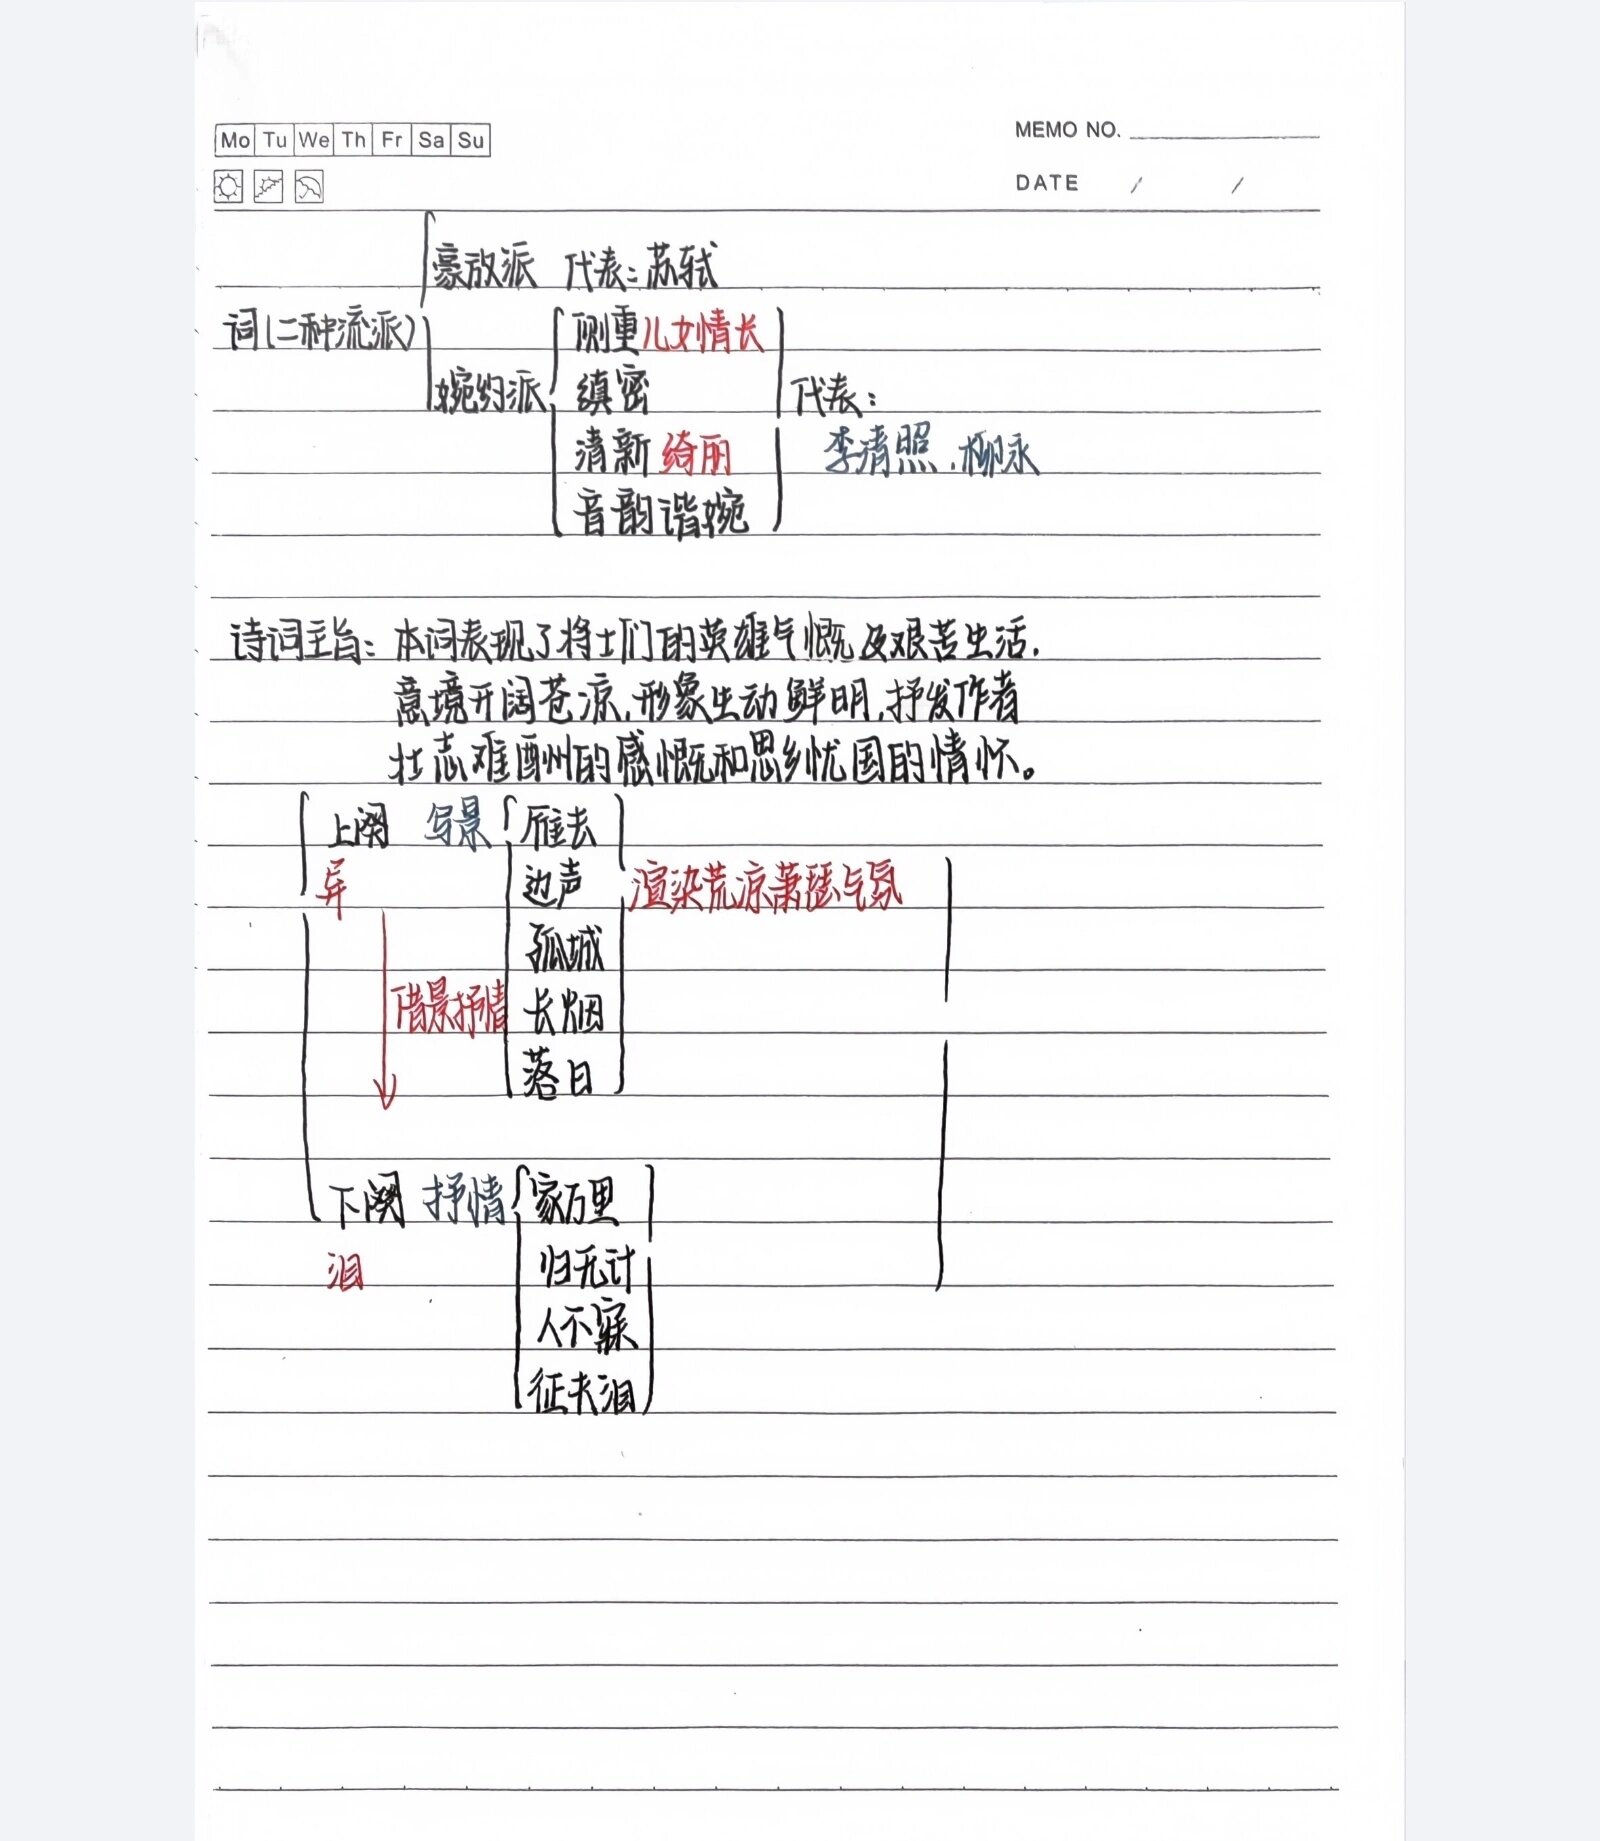 Mo Tu We Th Fr Sa Su
MEMO NO.
DATE / /
豪放派 代表：苏轼
词(二种流派)
侧重儿女情长
婉约派
缜密
代表：
清新绮丽
李清照.柳永
音韵谐婉
诗词主旨：本词表现了将士们的英雄气慨及艰苦生活.
意境开阔苍凉,形象生动鲜明,抒发作者
壮志难酬的感慨和思乡忧国的情怀。
上阕 写景 雁去
异 边声 渲染荒凉萧瑟气氛
孤城
借景抒情 长烟
落日
下阕 抒情 家万里
泪 归无计
人不寐
征夫泪